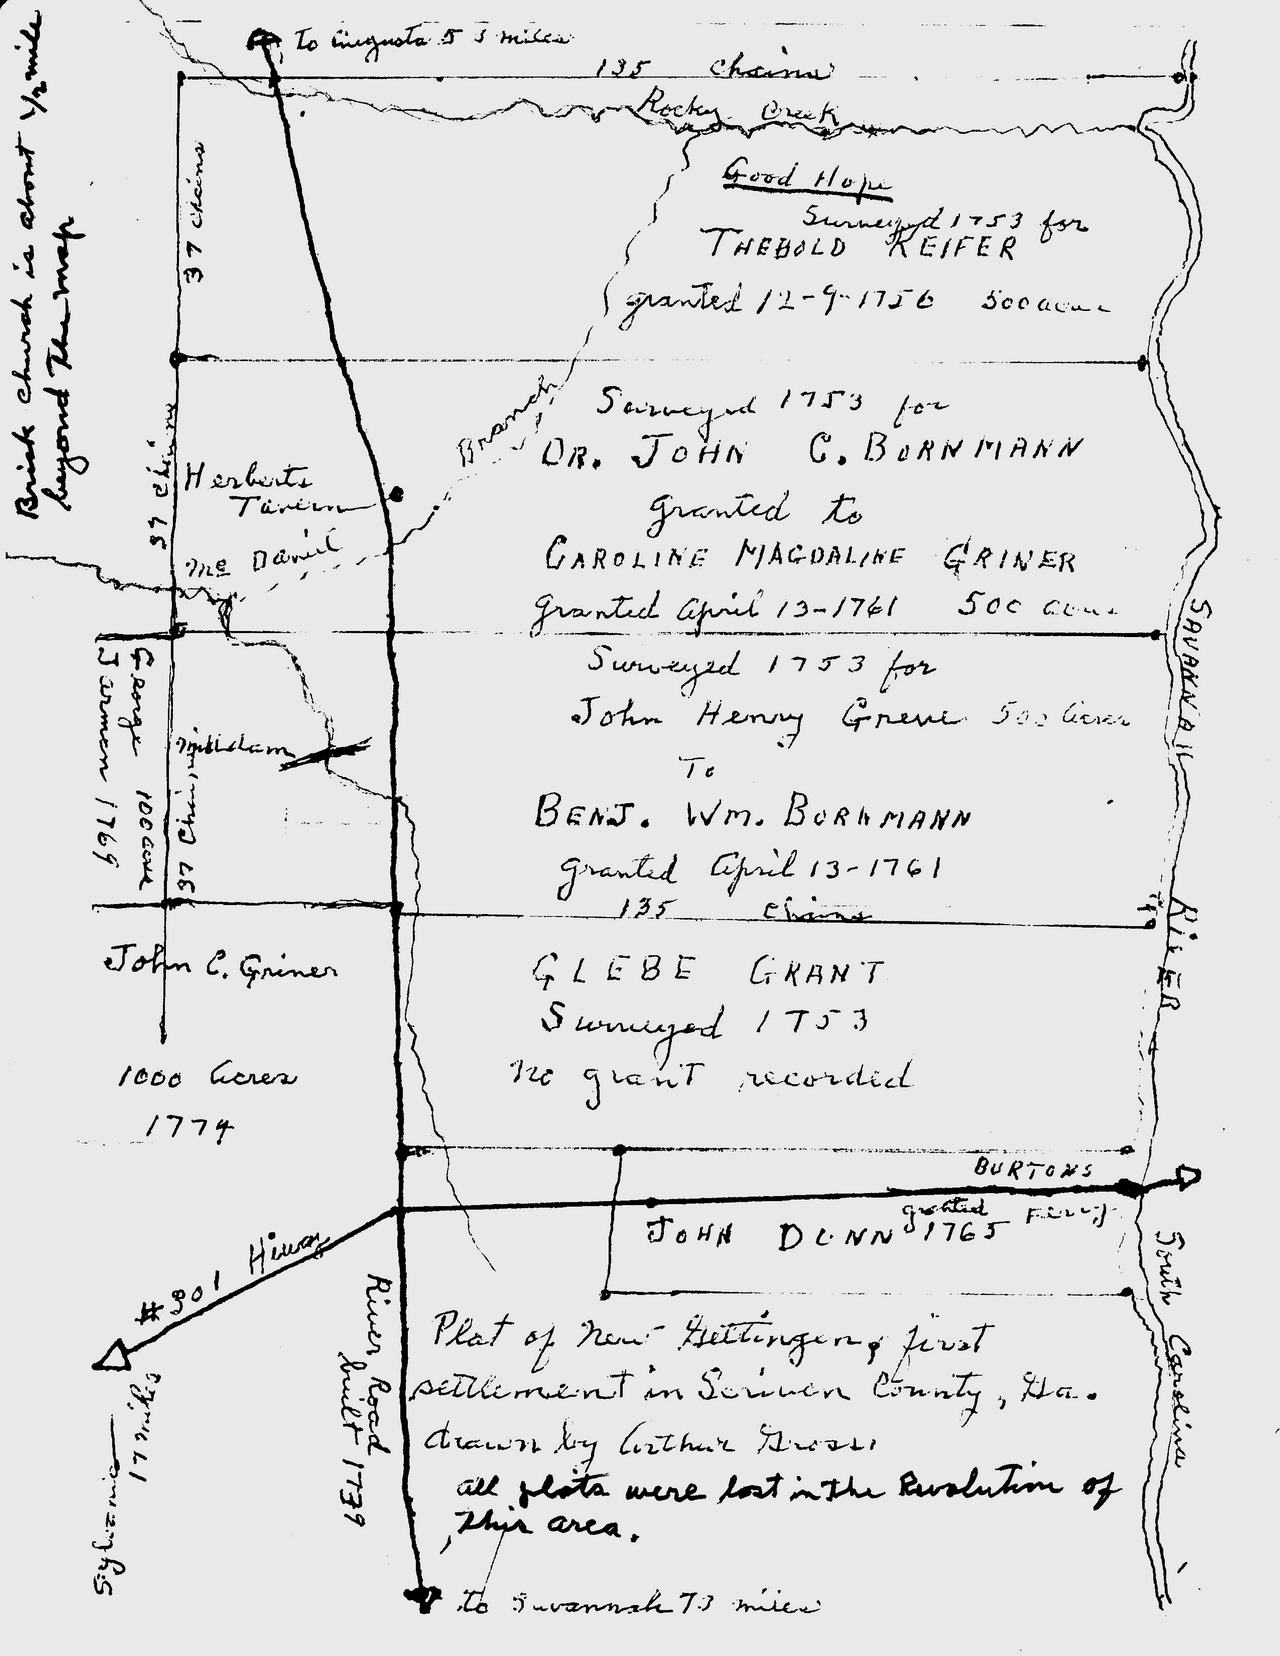 Brick Church is about 1/2 mile
beyond The map
to Augusta 53 miles
135 Chains
Rocky Creek
37 chains
Good Hope
Surveyed 1753 for
THEBOLD KEIFER
granted 12-9-1756 500 acres
Surveyed 1753 for
DR. JOHN C. BORNMANN
granted to
CAROLINE MAGDALINE GRINER
granted April 13-1761 500 acres
37 Chains
Herberts
Tavern
Mc Daniel
Branch
Surveyed 1753 for
John Henry Greve 500 Acres
To
BENJ. WM. BORNMANN
granted April 13-1761
135 Chains
George 100 acres
Jarmen 1769
37 Chains
Milldam
SAVANNAH
RIVER
John C. Griner
1000 Acres
1774
GLEBE GRANT
Surveyed 1753
No grant recorded
BURTONS
Ferry
JOHN DUNN granted 1765
#301 Hiway
Sylvania
17 miles
River Road
built 1739
South Carolina
Plat of New Gettingen, first
settlement in Scriven County, Ga.
drawn by Arthur Gross.
all plats were lost in The Revolution of
This area.
to Savannah 73 miles